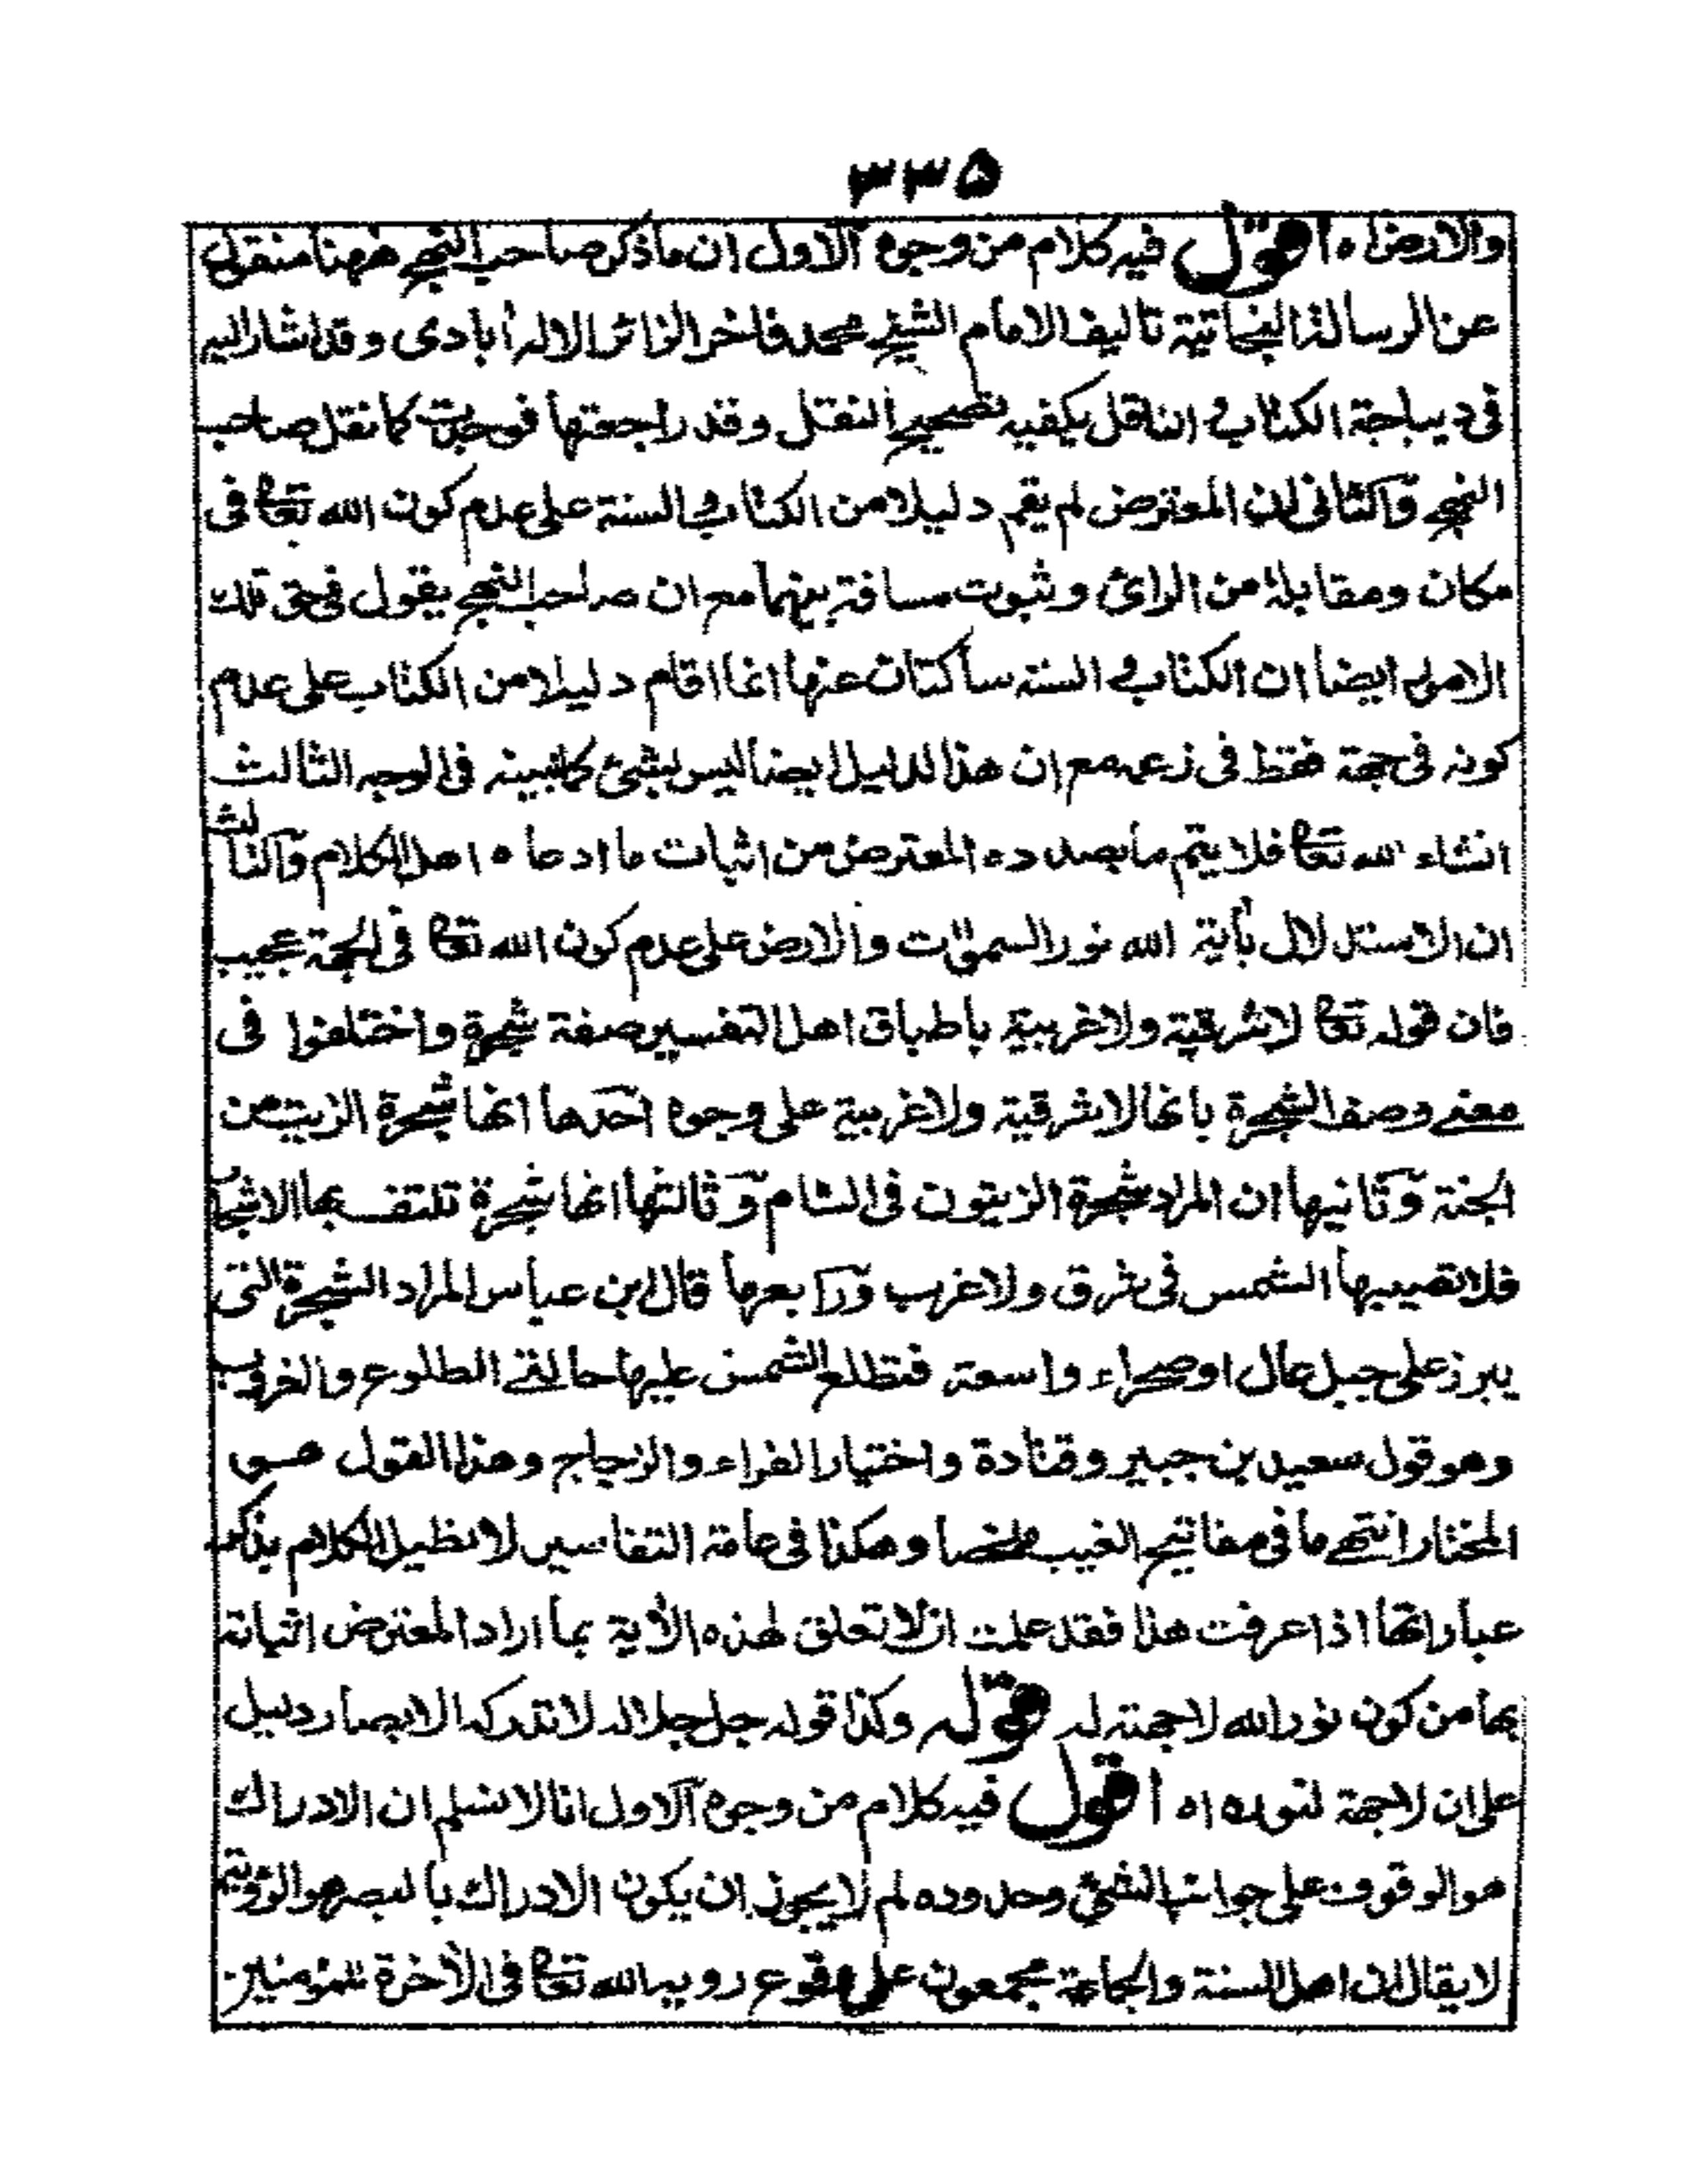 ٣٣٥
والارض اه اقول فيه كلام من وجوه الاول ان ما ذكر صاحب النهج ههنا منقول
عن الرسالة النجاتية تاليف الامام الشيخ محمد فاخر الزائر الاله أبادى وقد اشار اليه
فى ديباجة الكتاب و الناقل يكفيه تصحيح النقل وقد راجعتها فوجدت كما نقل صاحب
النهج والثانى ان المعترض لم يقم دليلا من الكتاب و السنة على عدم كون الله تعالى فى
مكان ومقابلة من الرائى وثبوت مسافة بينهما مع ان صاحب النهج يقول فى حق تلك
الامور ايضا ان الكتاب و السنة ساكتان عنها انما اقام دليلا من الكتاب على عدم
كونه فى جهة فقط فى زعمه مع ان هذا الدليل ايضا ليس بشئ كما نبينه فى الوجه الثالث
انشاء الله تعالى فلا يتم ما بصدده المعترض من اثبات ما ادعاه اهل الكلام والثالث
ان الاستدلال بأية الله نور السموات والارض على عدم كون الله تعالى فى الجهة عجيب
فان قوله تعالى لا شرقية ولا غربية باطباق اهل التفسير صفة شجرة واختلفوا فى
معنى وصف الشجرة بانها لا شرقية ولا غربية على وجوه احدها انها شجرة الزيت من
الجنة وثانيها ان المراد شجرة الزيتون فى الشام وثالثها انها شجرة تلتف بها الاشجار
فلا تصيبها الشمس فى شرق ولا غرب ورابعها قال ابن عباس المراد الشجرة التى
يبرز على جبل عال او صحراء واسعة فتطلع الشمس عليها حالتى الطلوع والغروب
وهو قول سعيد بن جبير وقتادة واختيار الفراء والزجاج وهذا القول هو
المختار انتهى ما فى مفاتيح الغيب ملخصا وهكذا فى عامة التفاسير لا نطيل الكلام بذكر
عباراتها اذا عرفت هذا فقد علمت ان لا تعلق لهذه الأية بما اراد المعترض اثباته
بها من كون نور الله لا جهة له قوله وكذا قوله جل جلاله لا تدركه الابصار دليل
على ان لا جهة لنوره اه اقول فيه كلام من وجوه الاول انا لا نسلم ان الادراك
هو الوقوف على جوانب الشئ وحدوده لم لا يجوز ان يكون الادراك بالبصر هو الرؤية
لا يقال ان اهل السنة والجماعة مجمعون على وقوع رويه الله تعالى فى الأخرة للمؤمنين